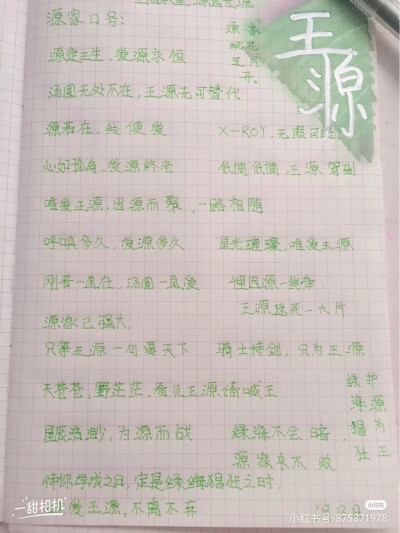 源家口号:
王源
源定三生，爱源永恒
汤圆无处不在，王源无可替代
源若在，我便爱
X-ROY，无限可
心如孤舟，爱源终老
低调低调，王源驾到
唯爱王源，因源而聚，一路相随
呼吸多久，爱源多久
星光璀璨，唯爱王源
刚哥一直在，汤圆一直爱
王源迷死一大片
源家已强大
只等王源一句要天下
骑士持剑，只为王源
天苍苍，野茫茫，看见王源倚喊王
绿护
海源
猖为
狂王
为源而战
绿海不会暗
源家永不败
待你学成之日，定是绿海猖狂之时
爱王源，不离不弃
一甜相机
小红书
小红书号:875871978